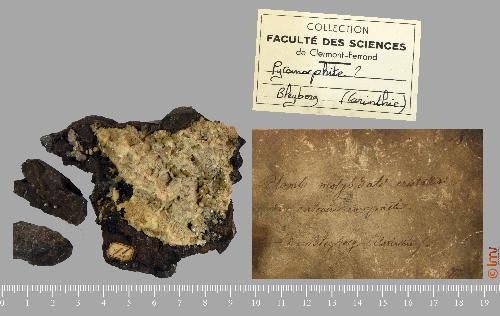 COLLECTION
FACULTÉ DES SCIENCES
de Clermont-Ferrand
Pyromorphite ?
Bleyberg (Carinthie)
Plomb molybdaté
Bleyberg (Carinthie)
© lmv
0 1 2 3 4 5 6 7 8 9 10 11 12 13 14 15 16 17 18 19